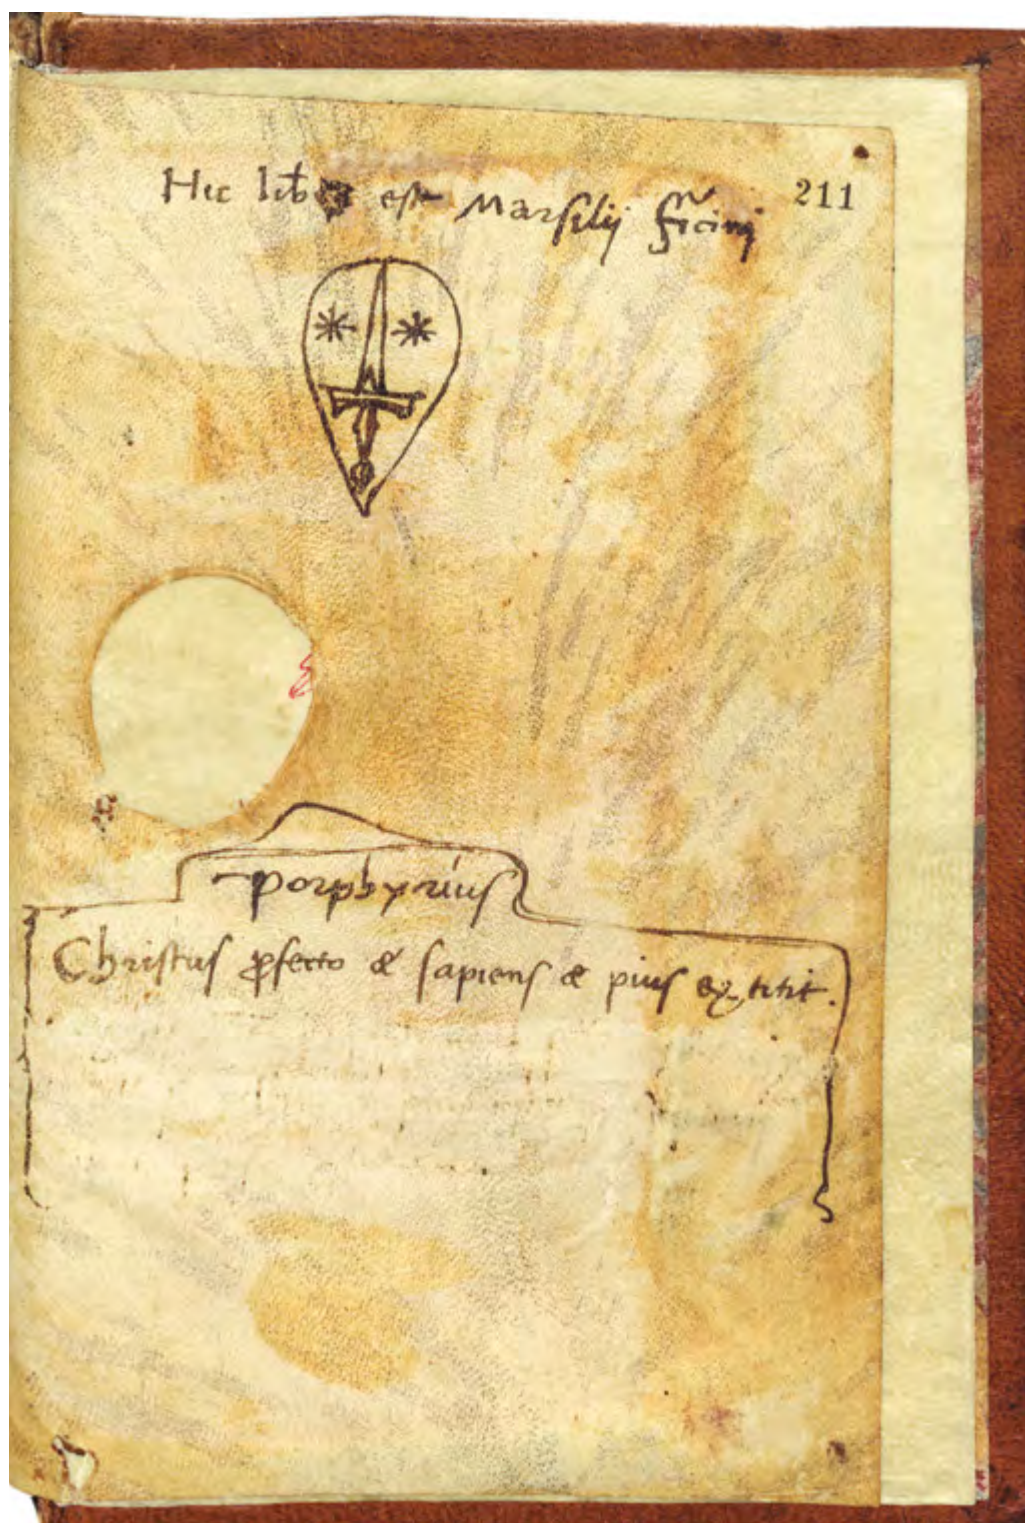 Hic liber est Marsilij ficinj
211
porphyrius
Christus ꝓfecto & sapiens & pius extitit.